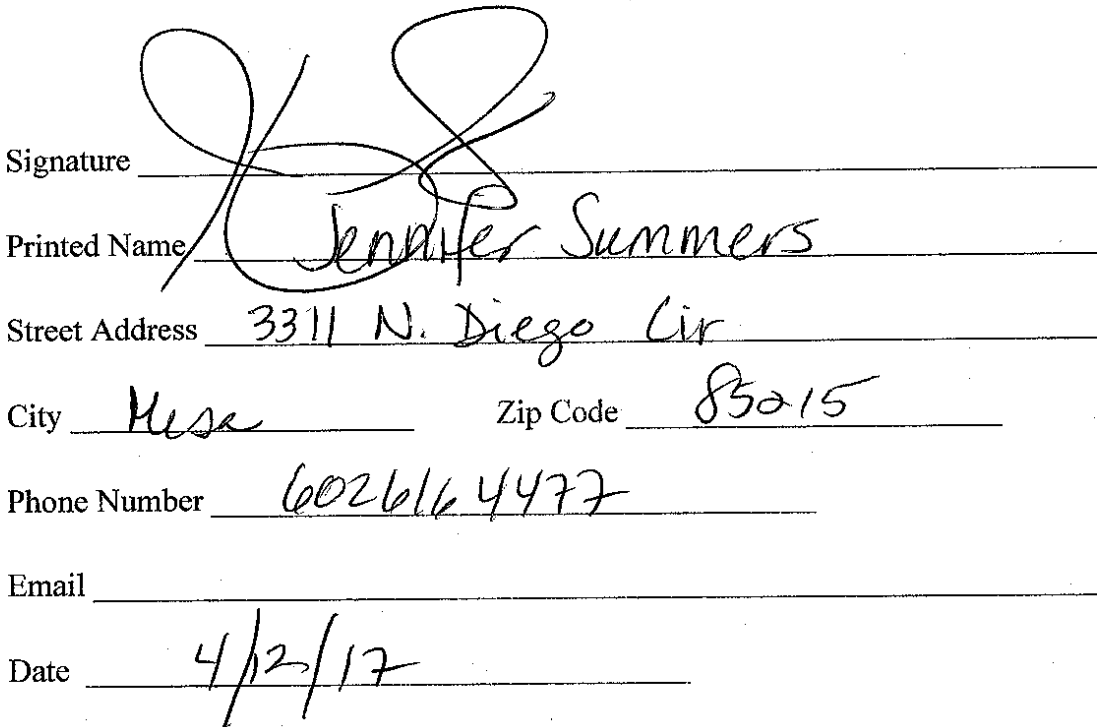 Signature
Printed Name Jennifer Summers
Street Address 3311 N. Diego Cir
City Mesa Zip Code 85215
Phone Number 6026164477
Email
Date 4/12/17